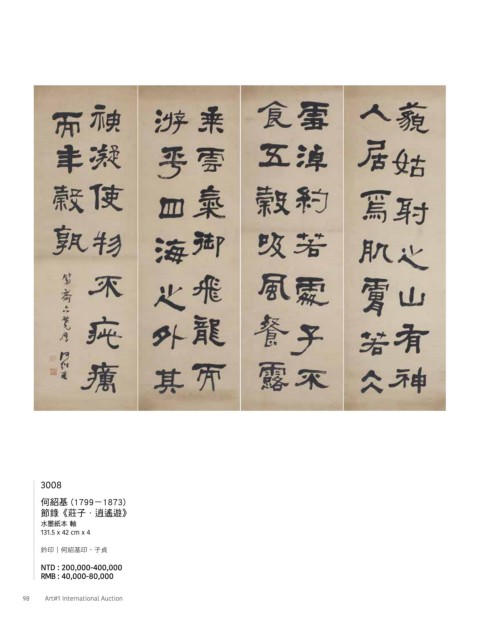 藐姑射之山有神
人居焉肌膚若仌
雪淖約若處子不
食五穀吸風餐露
乘雲氣御飛龍而
游乎四海之外其
神凝使物不疵癘
而年穀孰
齋六 何紹基
3008
何紹基 (1799－1873)
節錄《莊子．逍遙遊》
水墨紙本 軸
131.5 x 42 cm x 4
鈐印｜何紹基印、子貞
NTD : 200,000-400,000
RMB : 40,000-80,000
98 Art#1 International Auction